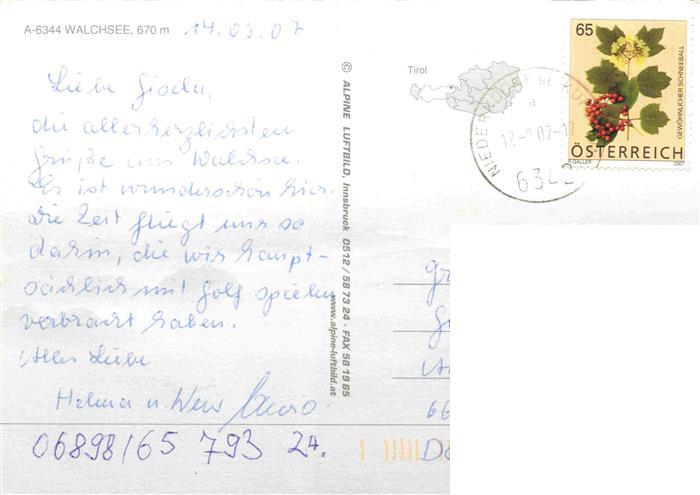 A-6344 WALCHSEE, 670 m 14.03.07
Liebe Gisela,
die allerherzlichsten
Grüße aus Walchsee.
Es ist wunderschön hier.
Die Zeit fliegt uns so
dahin, die wir haupt-
sächlich mit Golf spielen
verbracht haben.
Alles Liebe
Helma u.
06898/65 793 24.
© ALPINE LUFTBILD, Innsbruck 0512 / 58 73 24 · FAX 58 19 65
www.alpine-luftbild.at
Tirol
65
GEWÖHNLICHER SCHNEEBALL
ÖSTERREICH
GALLER 2007
NIEDERNDORF
634
66